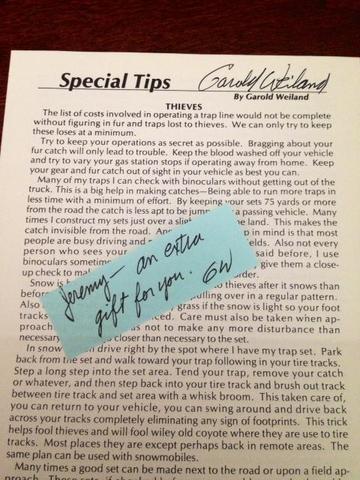 Special Tips
Garold Weiland
By Garold Weiland
THIEVES
The list of costs involved in operating a trap line would not be complete
without figuring in fur and traps lost to thieves. We can only try to keep
these loses at a minimum.
Try to keep your operations as secret as possible. Bragging about your
fur catch will only lead to trouble. Keep the blood washed off your vehicle
and try to vary your gas station stops if operating away from home. Keep
your gear and fur catch out of sight in your vehicle as best you can.
Many of my traps I can check with binoculars without getting out of the
truck. This is a big help in making catches—Being able to run more traps in
less time with a minimum of effort. By keeping your sets 75 yards or more
from the road the catch is less apt to be a passing vehicle. Many
times I construct my sets just over a the land. This makes the
catch invisible from the road. in mind is that most
people are busy driving and Also not every
person who sees your said before, I use
binoculars give them a close-
up check to
Snow thieves after it snows than
before over in a regular pattern.
Also grass if the snow is light so your foot
tracks Care must also be taken when ap-
proach not to make any more disturbance than
necessary closer than necessary to the set.
In snow drive right by the spot where I have my trap set. Park
back from the set and walk toward your trap following in your tire tracks.
Step a long step into the set area. Tend your trap, remove your catch
or whatever, and then step back into your tire track and brush out track
between tire track and set area with a whisk broom. This taken care of,
you can return to your vehicle, you can swing around and drive back
across your tracks completely eliminating any sign of footprints. This trick
helps fool thieves and will fool wiley old coyote where they are use to tire
tracks. Most places they are except perhaps back in remote areas. The
same plan can be used with snowmobiles.
Many times a good set can be made next to the road or upon a field ap-
Jeremy— an extra
gift for you. GW